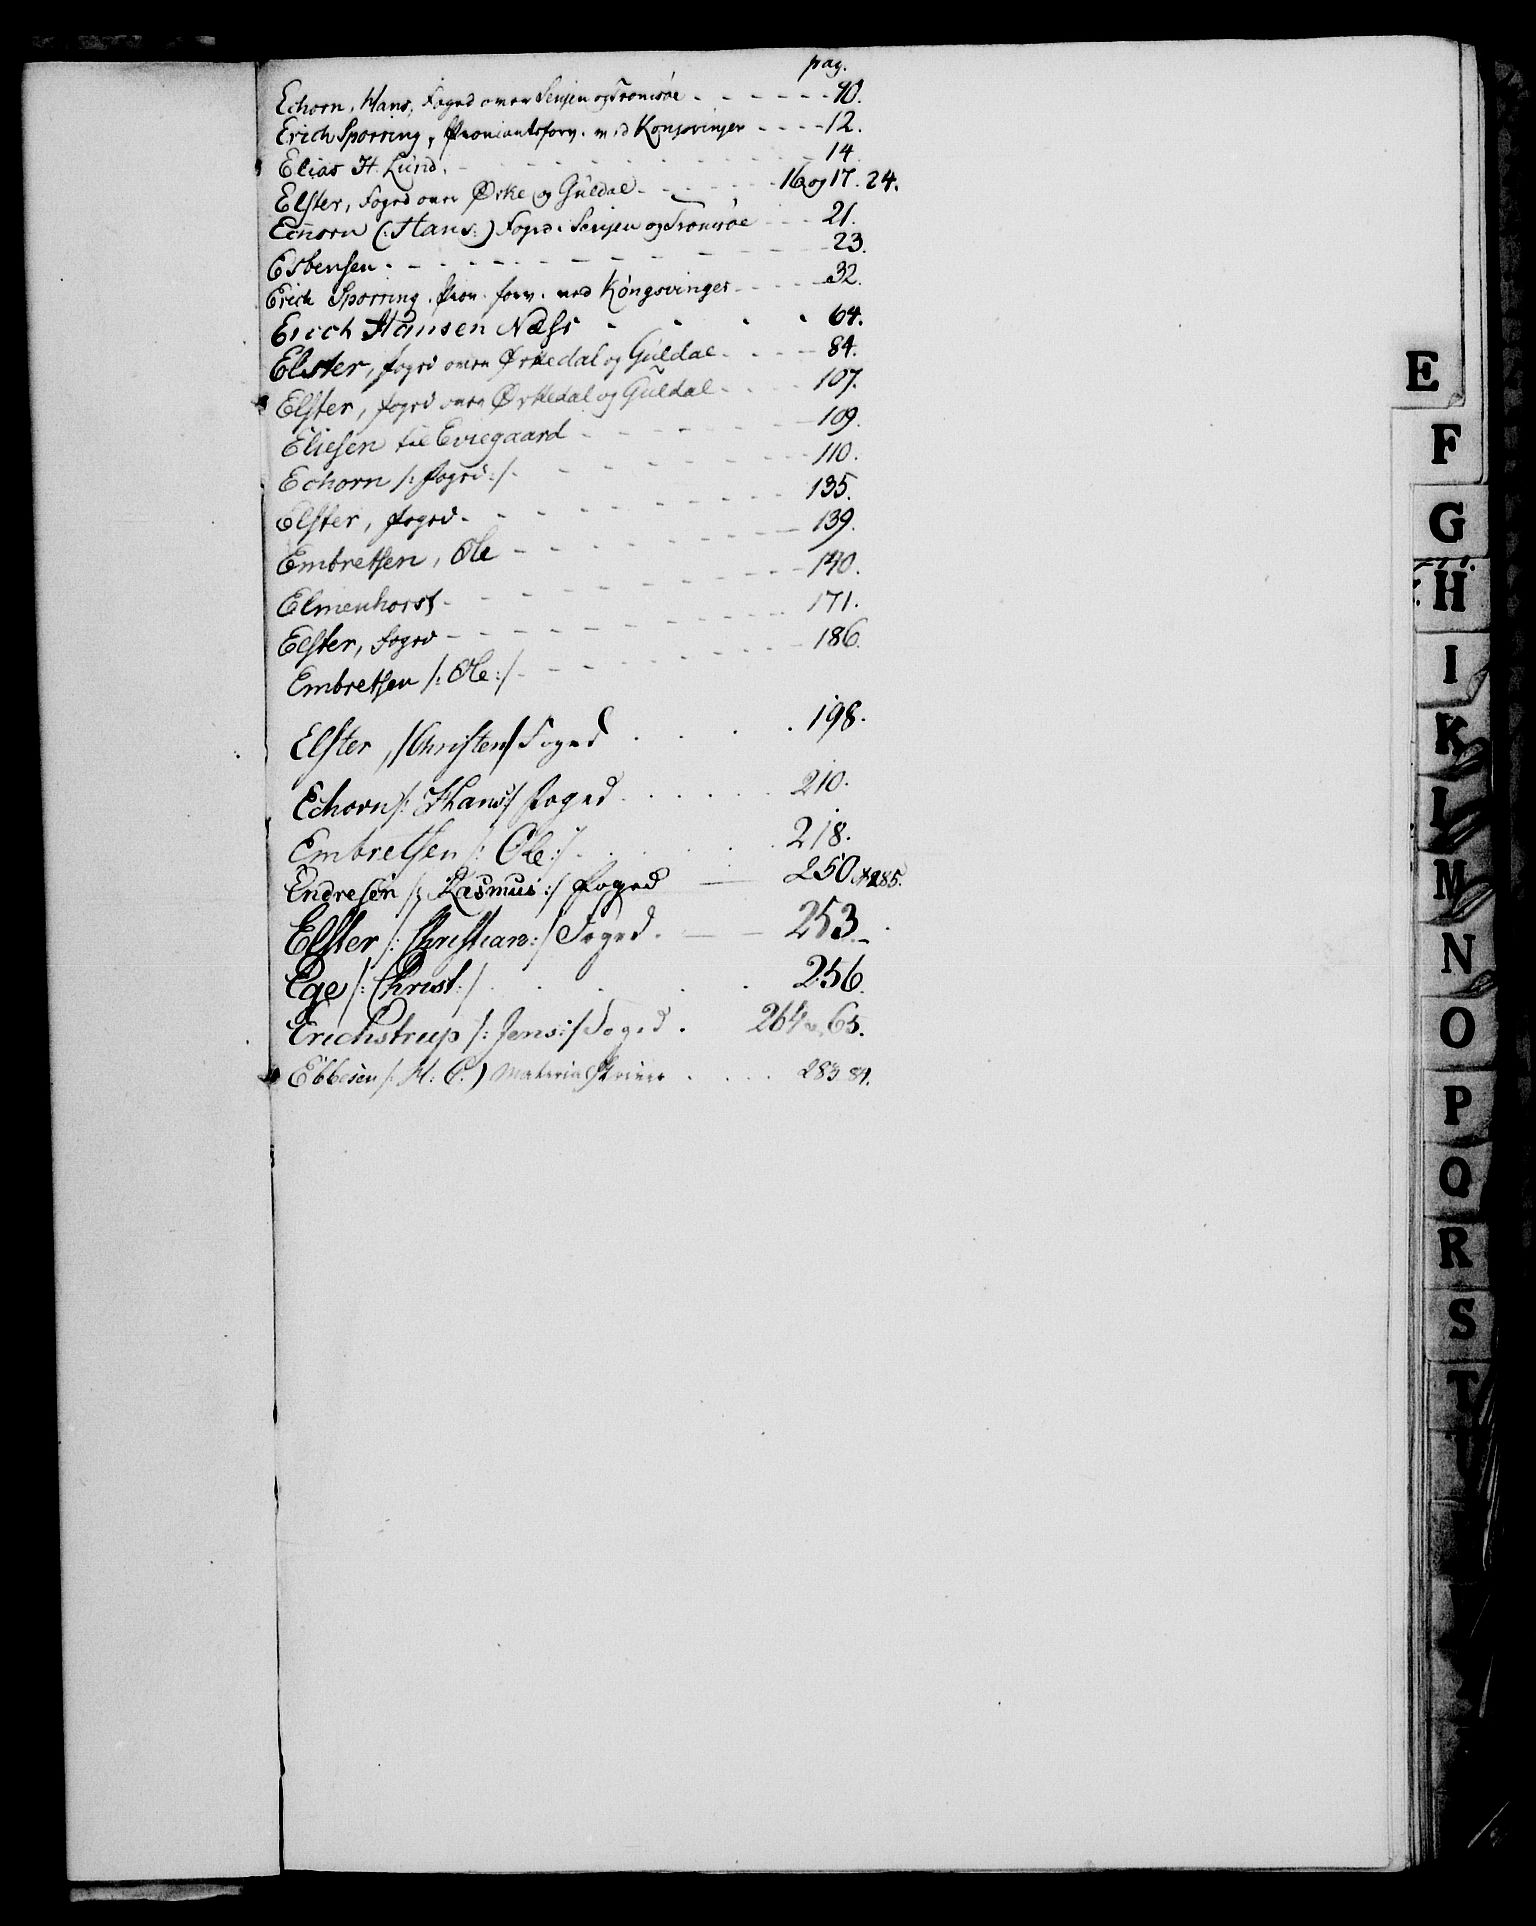 pag.
Echorn, Hans, Foged over Senjen og Tromsøe - - - - - - 10.
Erich Sporring, Proviantsforv. ved Kongsvinger - - - - 12.
Elias H. Lund. - - - - 14
Elster, Foged over Ørke og Guldal - - - - 16 og 17. 24.
Echorn (: Hans :) Foged i Senjen og Tromsøe - - - 21.
Esbensen - - - - - - - - 23.
Erich Sporring. Prov. forv. ved Kongsvinger - - - - 32.
Erich Hansen Næss - - - 64.
Elster, foged over Ørkedal og Guldal - - - - 84.
Elster, foged over Ørkedal og Guldal - - - - 107.
Eliesen til Evregaard - - - - - - 109.
Echorn /: foged :/ - - - - - - 110.
Elster, foged - - - - - - - 135.
Embretsen, Ole - - - - - - - 139.
Elmenhorst - - - - - - - 140.
Elster, Foged - - - - - - - 171.
Embretsen /: Ole :/ - - - - - - 186.
Elster, /Christen/ Foged . . . . 198.
Echorn /: Hans :/ foged . . . . . 210.
Embretsen /: Ole :/ . . . . . 218.
Endresen /: Rasmus :/ foged — 250. & 285.
Elster /: Christian :/ Foged. — — 253.
Ege /: Christ :/ . . . . . 256.
Erichstrup /: Jens :/ Foged . 264 65.
Ebbesen /: M: C. :) Materialskriver . . . . 283 84.
E
F
G
H
I
K
L
M
N
O
P
Q
R
S
T
U